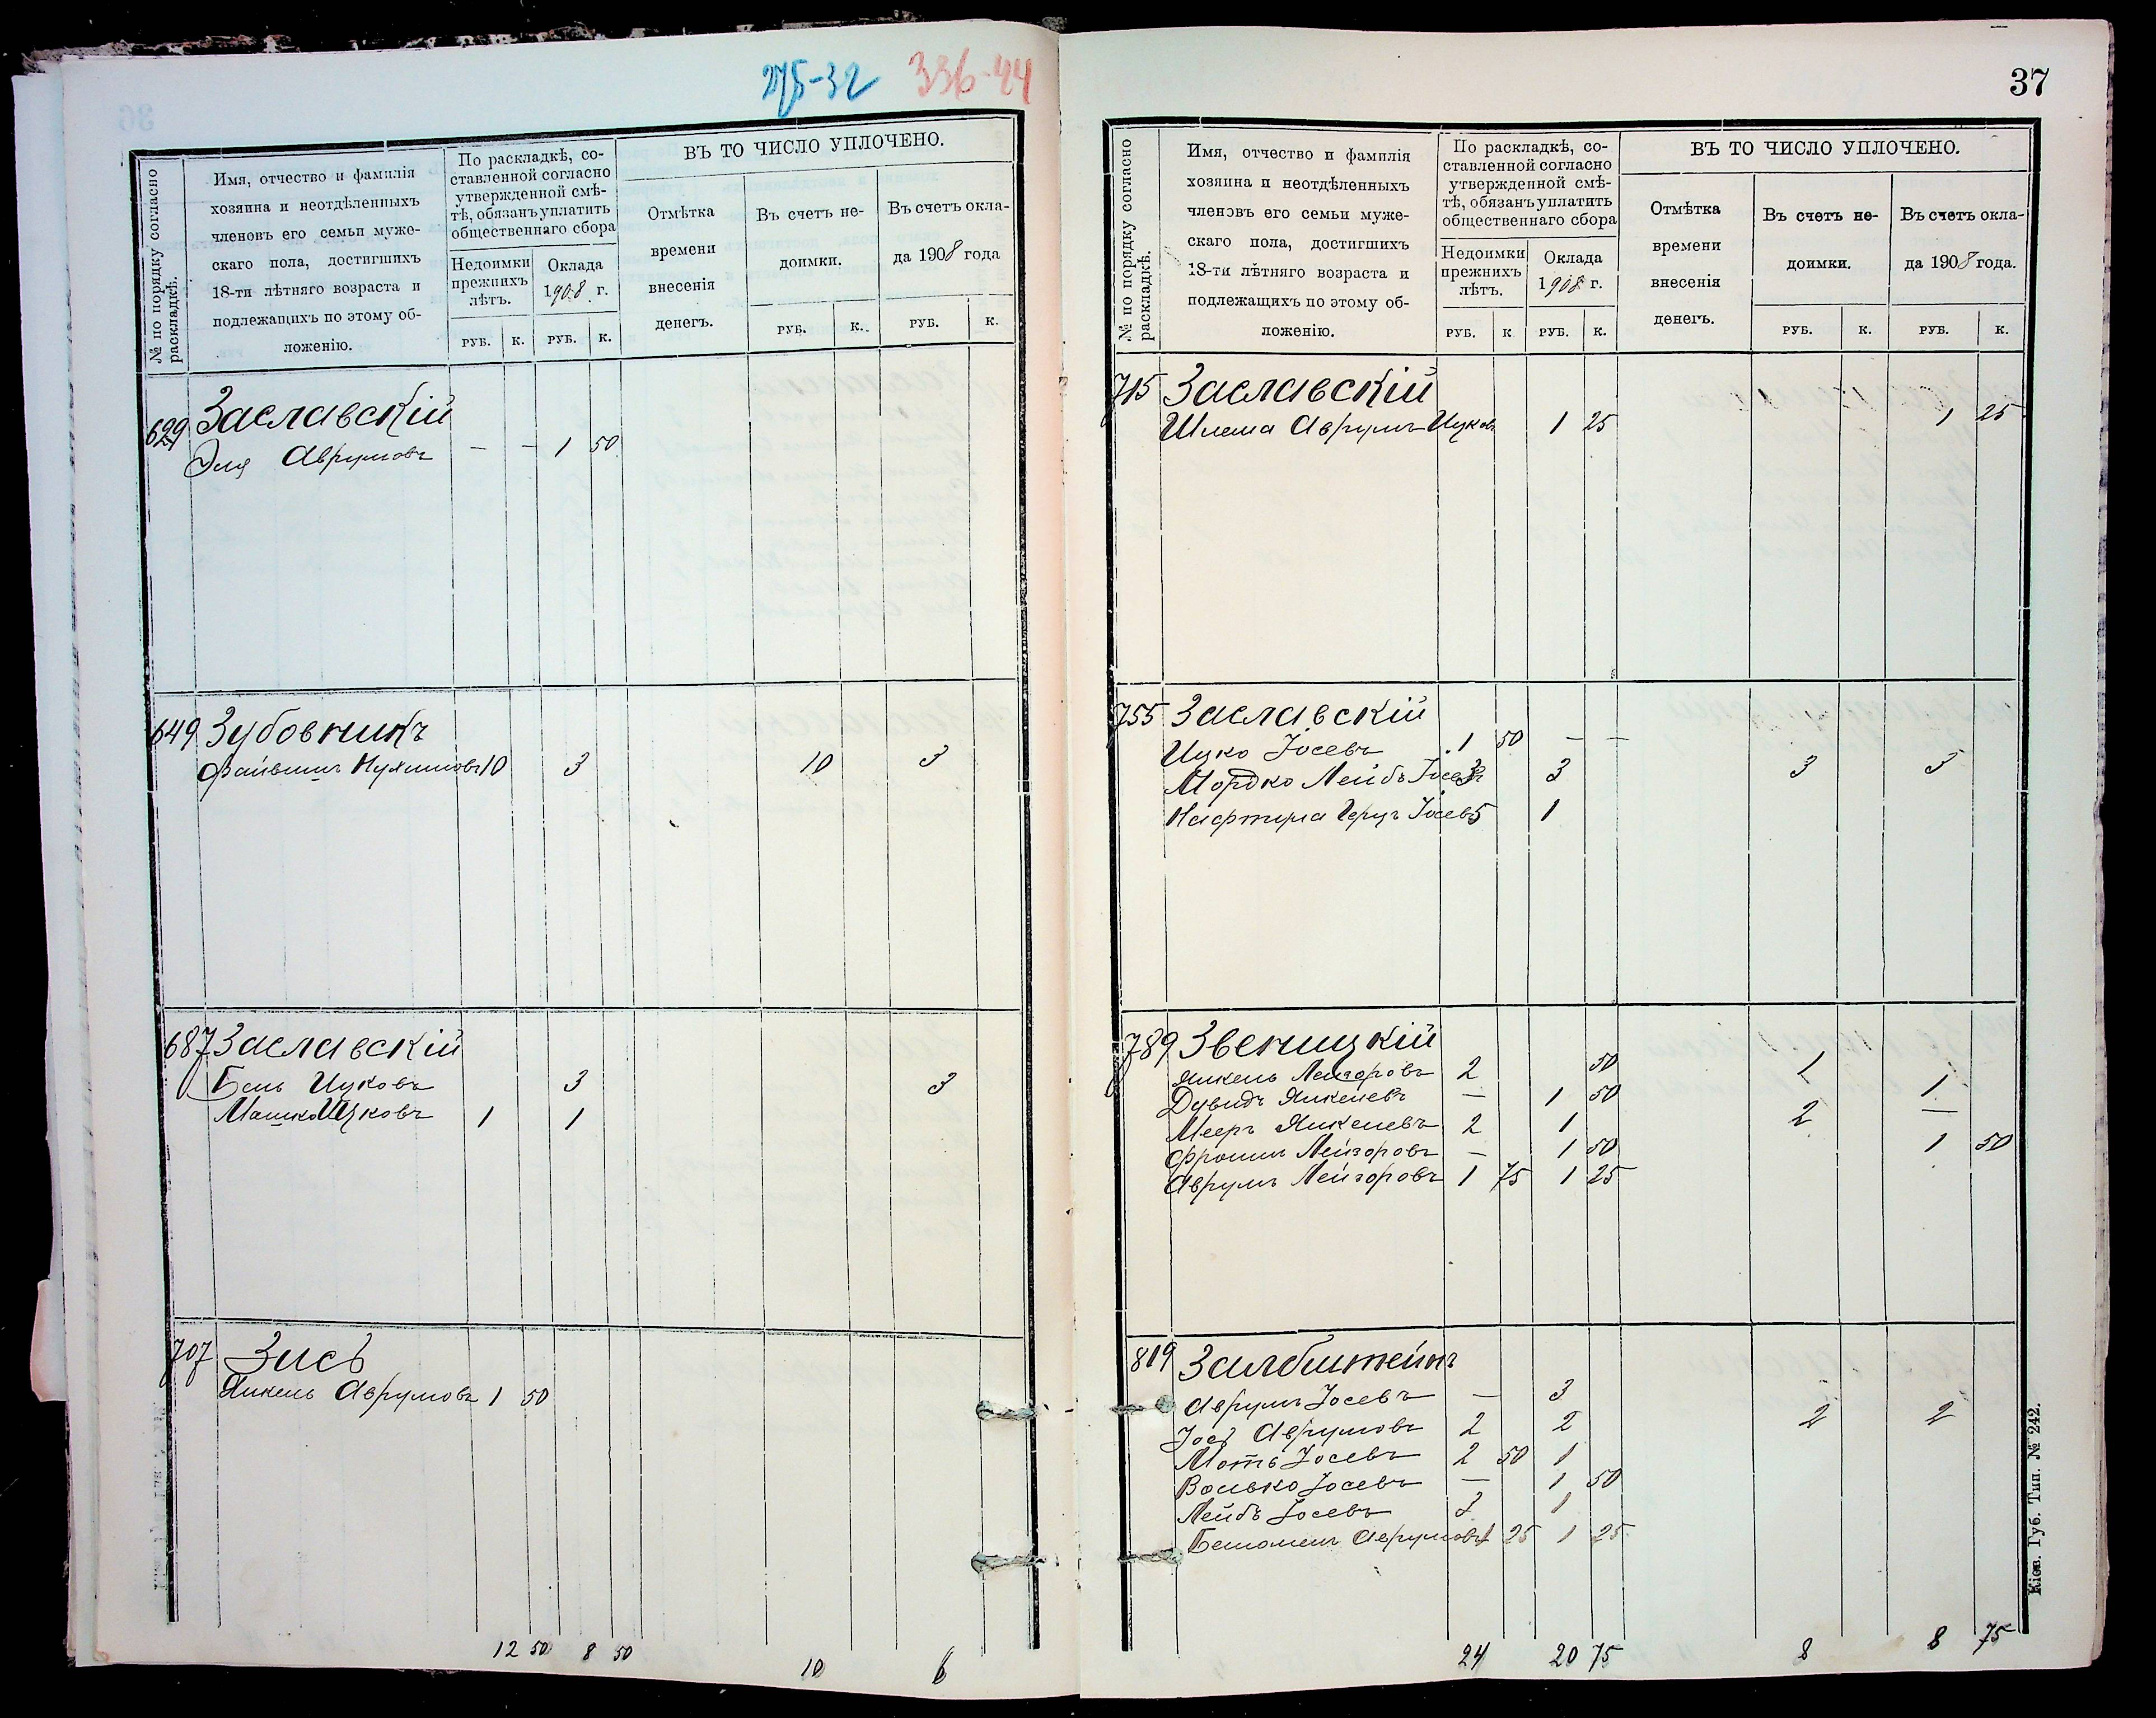 275-32 336-44
№ по порядку согласно раскладкѣ.
Имя, отчество и фамилія
хозяина и неотдѣленныхъ
членовъ его семьи муже-
скаго пола, достигшихъ
18-ти лѣтняго возраста и
подлежащихъ по этому об-
ложенію.
По раскладкѣ, со-
ставленной согласно
утвержденной смѣ-
тѣ, обязанъ уплатить
общественнаго сбора
Недоимки
прежнихъ
лѣтъ.
Оклада
1908 г.
РУБ. К. РУБ. К.
ВЪ ТО ЧИСЛО УПЛОЧЕНО.
Отмѣтка
времени
внесенія
денегъ.
Въ счетъ не-
доимки.
Въ счетъ окла-
да 1908 года
РУБ. К. РУБ. К.
629 Заславскій
Эля Аврумовъ — — 1 50
649 Зубовникъ
Файвишъ Нухимовъ 10 3 10 3
687 Заславскій
Бень Ицковъ 3 3
Машко Ицковъ 1 1
707 Зись
Янкель Аврумовъ 1 50
12 50 8 50 10 6
37
№ по порядку согласно раскладкѣ.
Имя, отчество и фамилія
хозяина и неотдѣленныхъ
членовъ его семьи муже-
скаго пола, достигшихъ
18-ти лѣтняго возраста и
подлежащихъ по этому об-
ложенію.
По раскладкѣ, со-
ставленной согласно
утвержденной смѣ-
тѣ, обязанъ уплатить
общественнаго сбора
Недоимки
прежнихъ
лѣтъ.
Оклада
1908 г.
РУБ. К РУБ. К.
ВЪ ТО ЧИСЛО УПЛОЧЕНО.
Отмѣтка
времени
внесенія
денегъ.
Въ счетъ не-
доимки.
Въ счетъ окла-
да 1908 года.
РУБ. К. РУБ. К.
715 Заславскій
Шлема Аврумъ Ицковъ 1 25 1 25
755 Заславскій
Ицко Іосевъ 1 50 — —
Мордко Лейбъ Іосевъ 3 3 3 3
Нафтула Герцъ Іосевъ 5 1
789 Звеницкій
Янкель Лейзоровъ 2 50 1
Дувидъ Янкелевъ — 1 50 1
Мееръ Янкелевъ 2 1 2 —
Фроимъ Лейзоровъ — 1 50 1 50
Аврумъ Лейзоровъ 1 75 1 25
819 Залбштейнъ
Аврумъ Іосевъ — 3
Іось Аврумовъ 2 2 2 2
Моть Іосевъ 2 50 1
Волько Іосевъ — 1 50
Лейбъ Іосевъ 3 1
Аврумовъ 1 25 1 25
24 20 75 8 8 75
Кіев. Губ. Тип. № 242.